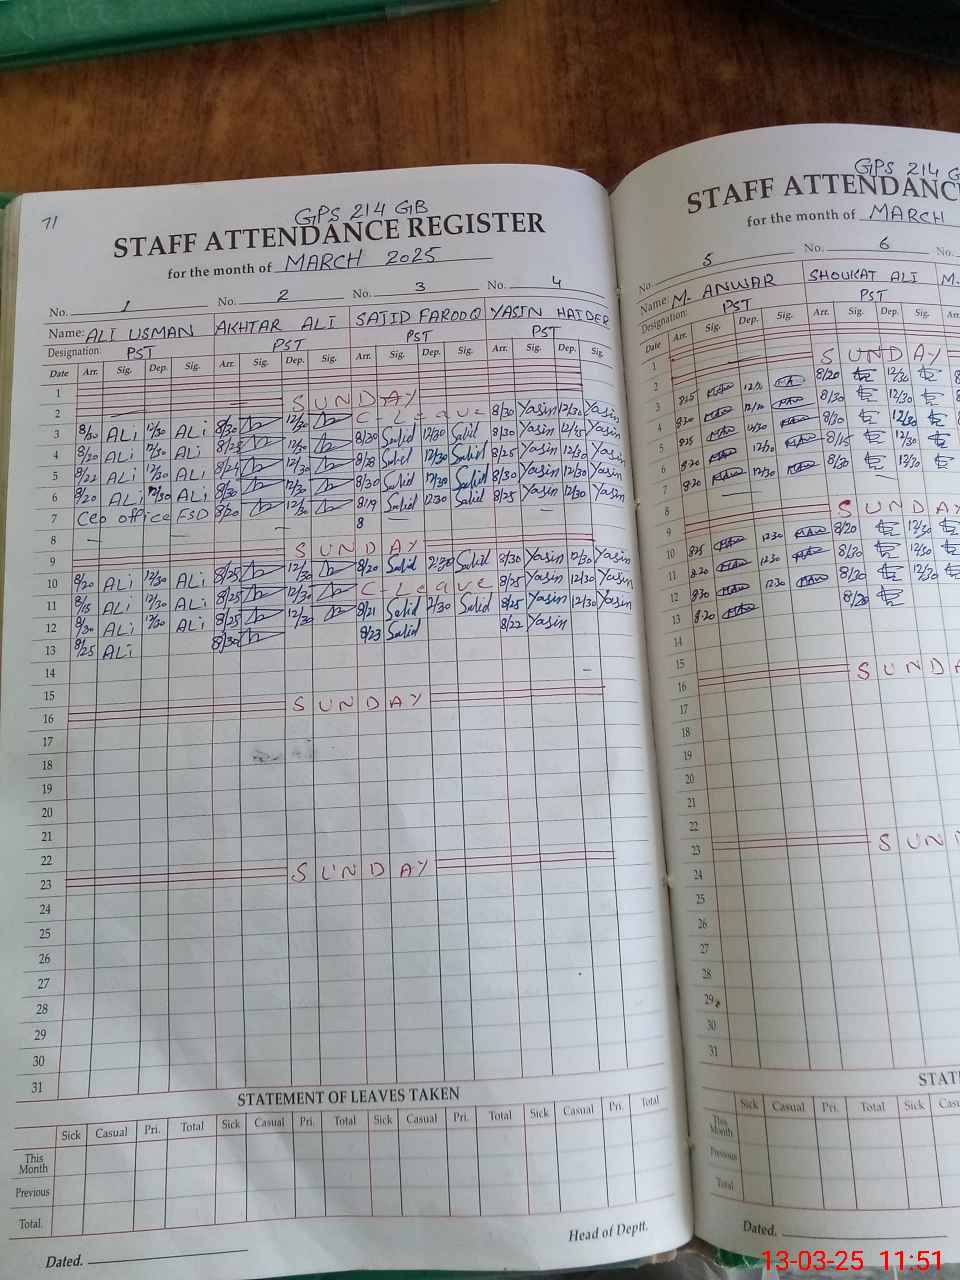 71
GPS 214 GB
STAFF ATTENDANCE REGISTER
for the month of MARCH 2025
No. 1 No. 2 No. 3 No. 4
Name: ALI USMAN AKHTAR ALI SAJID FAROOQ YASIN HAIDER
Designation: PST PST PST PST
Date Arr. Sig. Dep. Sig. Arr. Sig. Dep. Sig. Arr. Sig. Dep. Sig. Arr. Sig. Dep. Sig.
1
2 SUNDAY
3 8/30 ALi 12/30 ALi 8/30 12/30 C-Leave 8/30 Yasin 12/30 Yasin
4 8/20 ALi 12/30 ALi 8/25 12/30 8/20 Sajid 12/30 Sajid 8/30 Yasin 12/45 Yasin
5 8/22 ALi 12/30 ALi 8/24 12/30 8/28 Sajid 12/30 Sajid 8/25 Yasin 12/30 Yasin
6 8/20 ALi 12/30 ALi 8/30 12/30 8/30 Sajid 12/30 Sajid 8/30 Yasin 12/30 Yasin
7 Ceo office FSD 8/20 12/30 8/19 Sajid 1230 Sajid 8/25 Yasin 12/30 Yasin
8 — — 8 — —
9 SUNDAY
10 8/20 ALi 12/30 ALi 8/25 12/30 8/20 Sajid Sajid 8/30 Yasin 12/30 Yasin
11 8/15 ALi 12/30 ALi 8/25 12/30 C-Leave 8/25 Yasin 12/30 Yasin
12 8/30 ALi 12/30 ALi 8/25 12/30 8/21 Sajid Sajid 8/25 Yasin 12/30 Yasin
13 8/25 ALi 8/30 8/23 Sajid 8/22 Yasin
14
15
16 SUNDAY
17
18
19
20
21
22
23 SUNDAY
24
25
26
27
28
29
30
31
STATEMENT OF LEAVES TAKEN
Sick Casual Pri. Total Sick Casual Pri. Total Sick Casual Pri. Total Sick Casual Pri. Total
This Month
Previous
Total.
Dated. Head of Deptt.
GPS 214 G
STAFF ATTENDANC
for the month of MARCH
No. 5 No. 6 No.
Name: M. ANWAR SHOUKAT ALI M.
Designation: PST PST
Date Arr. Sig. Dep. Sig. Arr. Sig. Dep. Sig.
1
2 SUNDAY
3 825 12/30 8/20 12/30
4 830 12/30 8/30 12/30
5 825 12/30 8/30 12/30
6 820 12/30 8/15 12/30
7 820 12/30 8/30 12/30
8 — —
9 SUNDAY
10 825 1230 8/20 12/30
11 820 1230 8/30 12/30
12 830 1230 8/30 12/30
13 820 8/20
14
15
16 SUNDA
17
18
19
20
21
22
23 SUN
24
25
26
27
28
29
30
31
STATE
Sick Casual Pri. Total Sick Cas
This Month
Previous
Total
Dated.
13-03-25 11:51